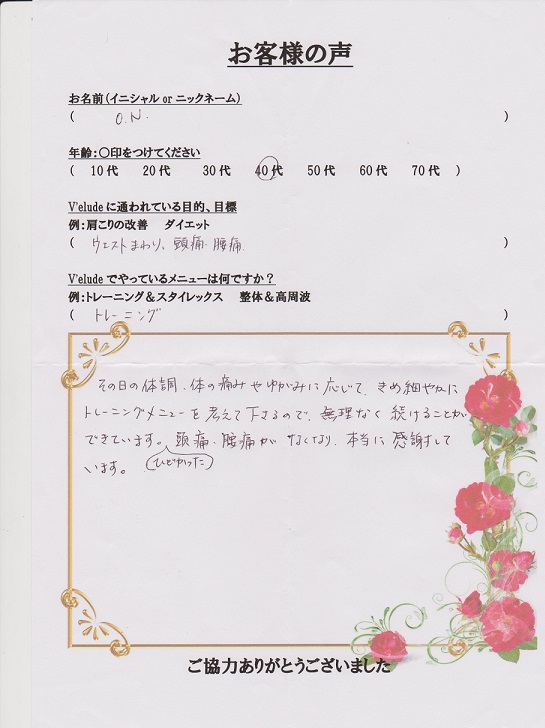 お客様の声
お名前(イニシャル or ニックネーム)
( O.N. )
年齢:〇印をつけてください
( 10代 20代 30代 40代 50代 60代 70代 )
V'elude に通われている目的、目標
例:肩こりの改善 ダイエット
( ウエストまわり、頭痛・腰痛 )
V'elude でやっているメニューは何ですか?
例:トレーニング&スタイレックス 整体&高周波
( トレーニング )
その日の体調、体の痛みやゆがみに応じて、きめ細やかに
トレーニングメニューを考えて下さるので、無理なく続けることが
できています。頭痛・腰痛がなくなり、本当に感謝して
います。 (ひどかった)
ご協力ありがとうございました